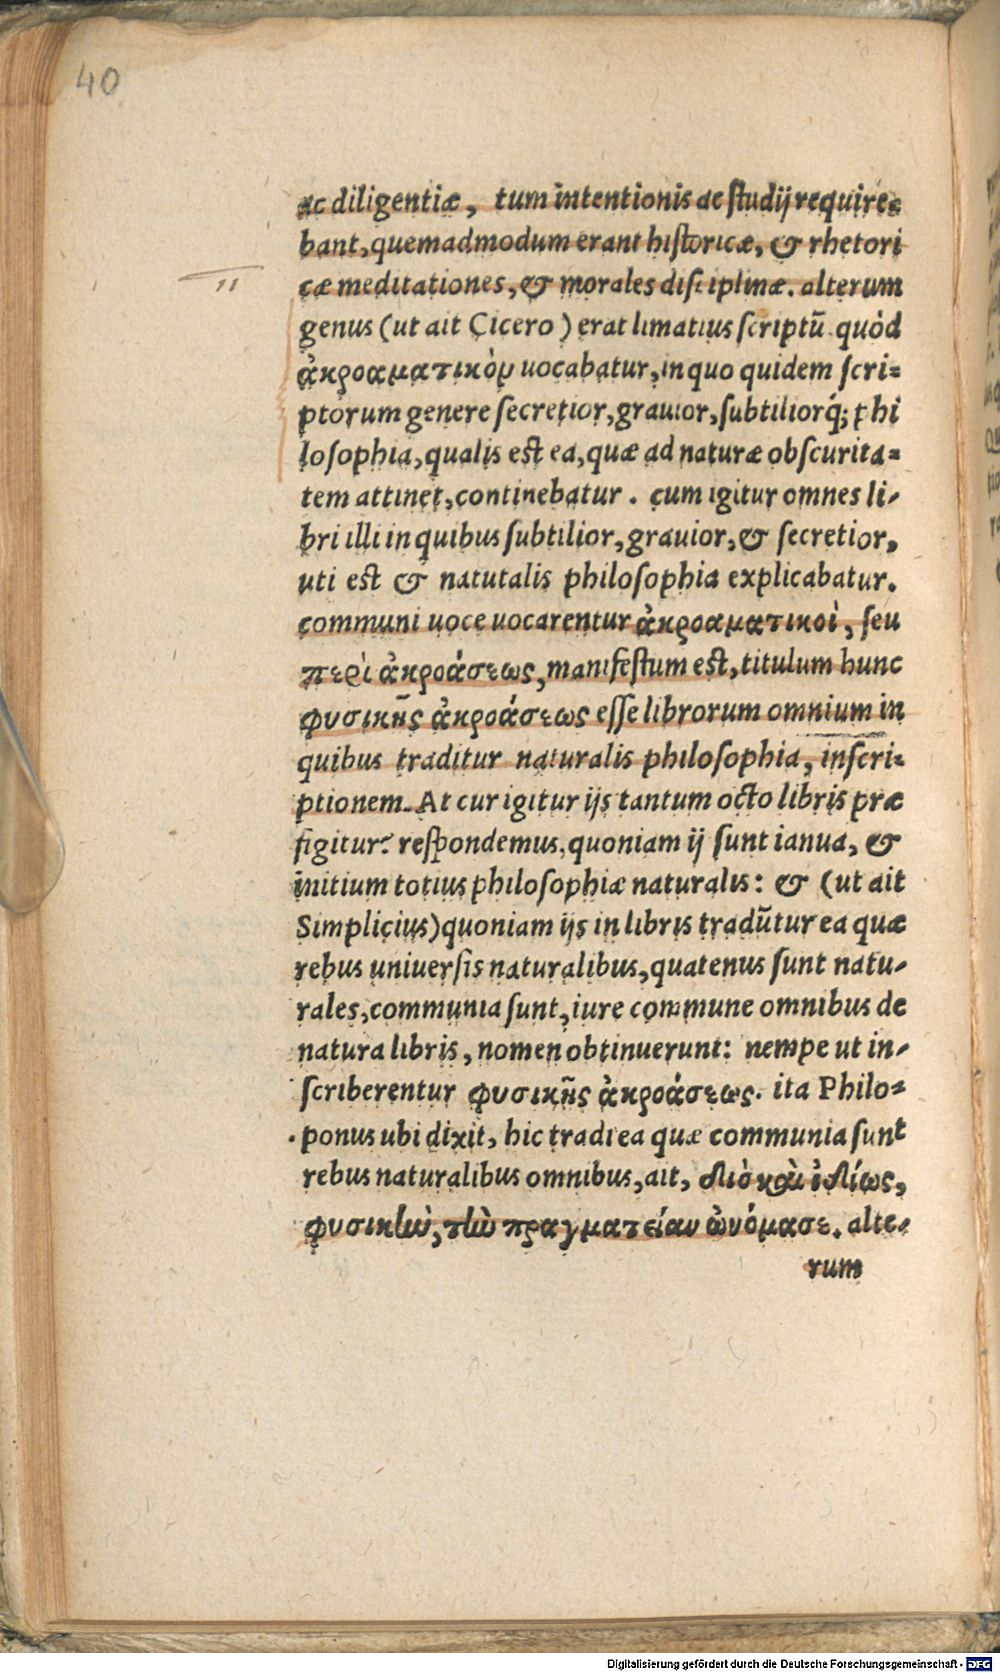 40
ac diligentiæ, tum intentionis ac studij require=
bant, quemadmodum erant historicæ, & rhetori
cæ meditationes, & morales disciplinæ. alterum
genus (ut ait Cicero) erat limatius scriptū quòd
ἀκροαματικὸν uocabatur, in quo quidem scri=
ptorum genere secretior, grauior, subtiliorq́; phi
losophia, qualis est ea, quæ ad naturæ obscurita=
tem attinet, continebatur. cum igitur omnes li-
bri illi in quibus subtilior, grauior, & secretior,
uti est & natutalis philosophia explicabatur.
communi uoce uocarentur ἀκροαματικοὶ, seu
περὶ ἀκροάσεως, manifestum est, titulum hunc
φυσικῆς ἀκροάσεως esse librorum omnium in
quibus traditur naturalis philosophia, inscri=
ptionem. At cur igitur ijs tantum octo libris præ
figitur? respondemus, quoniam ij sunt ianua, &
initium totius philosophiæ naturalis: & (ut ait
Simplicius) quoniam ijs in libris tradūtur ea quæ
rebus uniuersis naturalibus, quatenus sunt natu-
rales, communia sunt, iure commune omnibus de
natura libris, nomen obtinuerunt: nempe ut in-
scriberentur φυσικῆς ἀκροάσεως. ita Philo=
ponus ubi dixit, hic tradi ea quæ communia sunt
rebus naturalibus omnibus, ait, διὸ καὶ ἰδίως,
φυσικὴν, τὴν πραγματείαν ὠνόμασε. alte-
rum
Digitalisierung gefördert durch die Deutsche Forschungsgemeinschaft - DFG